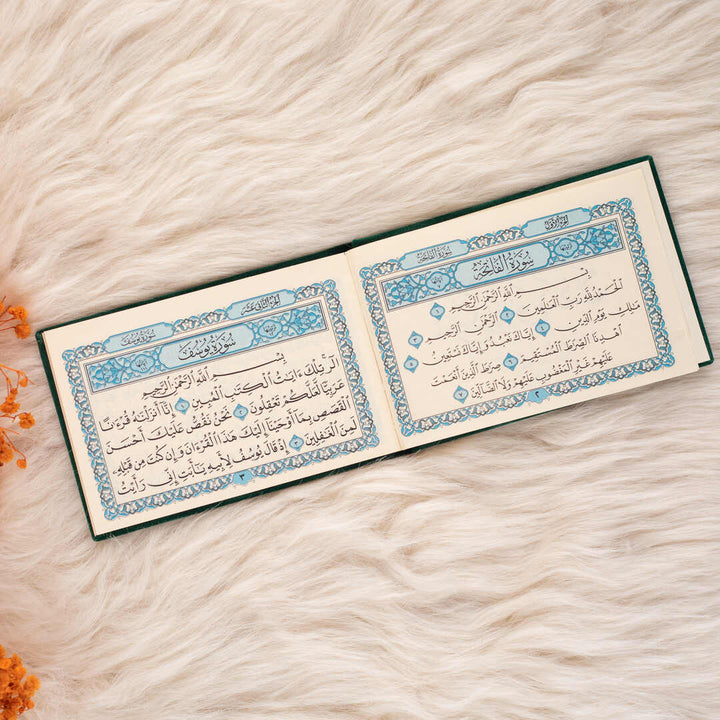 الجزء الأول
سورة الفاتحة
سُورَةُ الْفَاتِحَةِ
بِسْمِ اللَّهِ الرَّحْمَنِ الرَّحِيمِ ١
الْحَمْدُ لِلَّهِ رَبِّ الْعَالَمِينَ ٢ الرَّحْمَنِ الرَّحِيمِ ٣
مَالِكِ يَوْمِ الدِّينِ ٤ إِيَّاكَ نَعْبُدُ وَإِيَّاكَ نَسْتَعِينُ ٥
اهْدِنَا الصِّرَاطَ الْمُسْتَقِيمَ ٦ صِرَاطَ الَّذِينَ أَنْعَمْتَ
عَلَيْهِمْ غَيْرِ الْمَغْضُوبِ عَلَيْهِمْ وَلَا الضَّالِّينَ ٧
٢
الجزء الثاني عشر
سورة يوسف
سُورَةُ يُوسُفَ
بِسْمِ اللَّهِ الرَّحْمَنِ الرَّحِيمِ
الر تِلْكَ آيَاتُ الْكِتَابِ الْمُبِينِ ١ إِنَّا أَنْزَلْنَاهُ قُرْءَانًا
عَرَبِيًّا لَعَلَّكُمْ تَعْقِلُونَ ٢ نَحْنُ نَقُصُّ عَلَيْكَ أَحْسَنَ
الْقَصَصِ بِمَا أَوْحَيْنَا إِلَيْكَ هَذَا الْقُرْءَانَ وَإِنْ كُنْتَ مِنْ قَبْلِهِ
لَمِنَ الْغَافِلِينَ ٣ إِذْ قَالَ يُوسُفُ لِأَبِيهِ يَا أَبَتِ إِنِّي رَأَيْتُ
٣